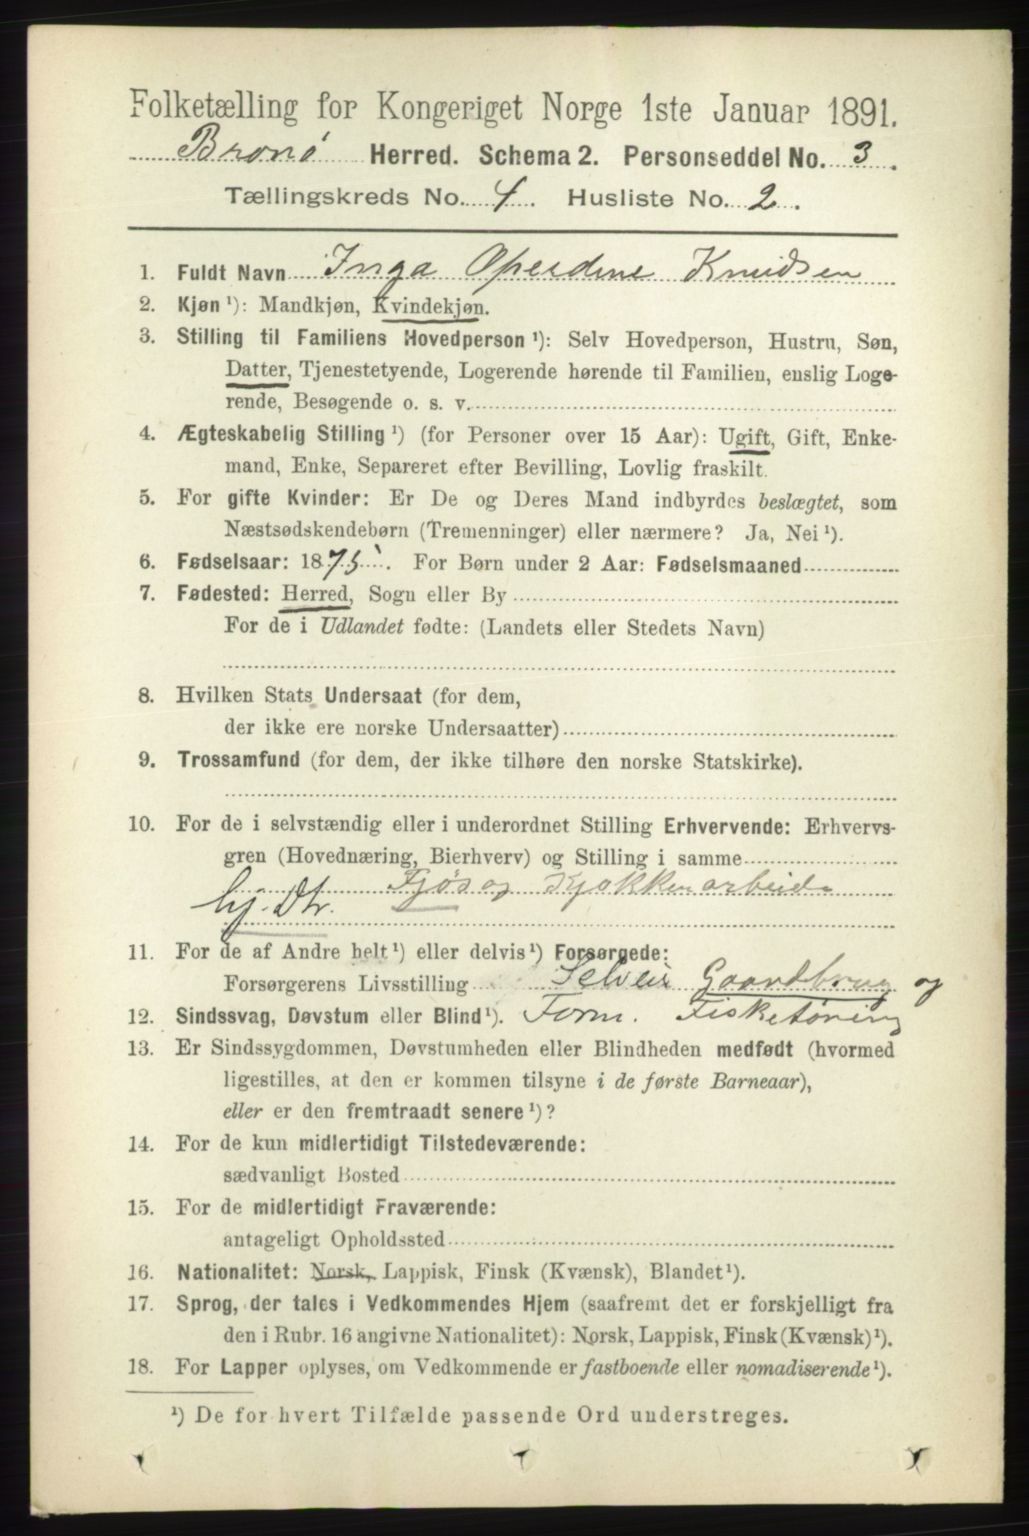 Folketælling for Kongeriget Norge 1ste Januar 1891.
Brønø Herred. Schema 2. Personseddel No. 3.
Tællingskreds No. 4. Husliste No. 2.
1. Fuldt Navn Inga Knudsen
2. Kjøn ¹): Mandkjøn, Kvindekjøn.
3. Stilling til Familiens Hovedperson ¹): Selv Hovedperson, Hustru, Søn,
Datter, Tjenestetyende, Logerende hørende til Familien, enslig Loge-
rende, Besøgende o. s. v.
4. Ægteskabelig Stilling ¹) (for Personer over 15 Aar): Ugift, Gift, Enke-
mand, Enke, Separeret efter Bevilling, Lovlig fraskilt.
5. For gifte Kvinder: Er De og Deres Mand indbyrdes beslægtet, som
Næstsødskendebørn (Tremenninger) eller nærmere? Ja, Nei ¹).
6. Fødselsaar: 1875. For Børn under 2 Aar: Fødselsmaaned
7. Fødested: Herred, Sogn eller By
For de i Udlandet fødte: (Landets eller Stedets Navn)
8. Hvilken Stats Undersaat (for dem,
der ikke ere norske Undersaatter)
9. Trossamfund (for dem, der ikke tilhøre den norske Statskirke).
10. For de i selvstændig eller i underordnet Stilling Erhvervende: Erhvervs-
gren (Hovednæring, Bierhverv) og Stilling i samme
Fjøs og Kjøkkenarbeide
hj. Dtr.
11. For de af Andre helt ¹) eller delvis ¹) Forsørgede:
Forsørgerens Livsstilling Selveir Gaardbrug og
12. Sindssvag, Døvstum eller Blind ¹). Form.
13. Er Sindssygdommen, Døvstumheden eller Blindheden medfødt (hvormed
ligestilles, at den er kommen tilsyne i de første Barneaar),
eller er den fremtraadt senere ¹)?
14. For de kun midlertidigt Tilstedeværende:
sædvanligt Bosted
15. For de midlertidigt Fraværende:
antageligt Opholdssted
16. Nationalitet: Norsk, Lappisk, Finsk (Kvænsk), Blandet ¹).
17. Sprog, der tales i Vedkommendes Hjem (saafremt det er forskjelligt fra
den i Rubr. 16 angivne Nationalitet): Norsk, Lappisk, Finsk (Kvænsk) ¹).
18. For Lapper oplyses, om Vedkommende er fastboende eller nomadiserende ¹).
¹) De for hvert Tilfælde passende Ord understreges.